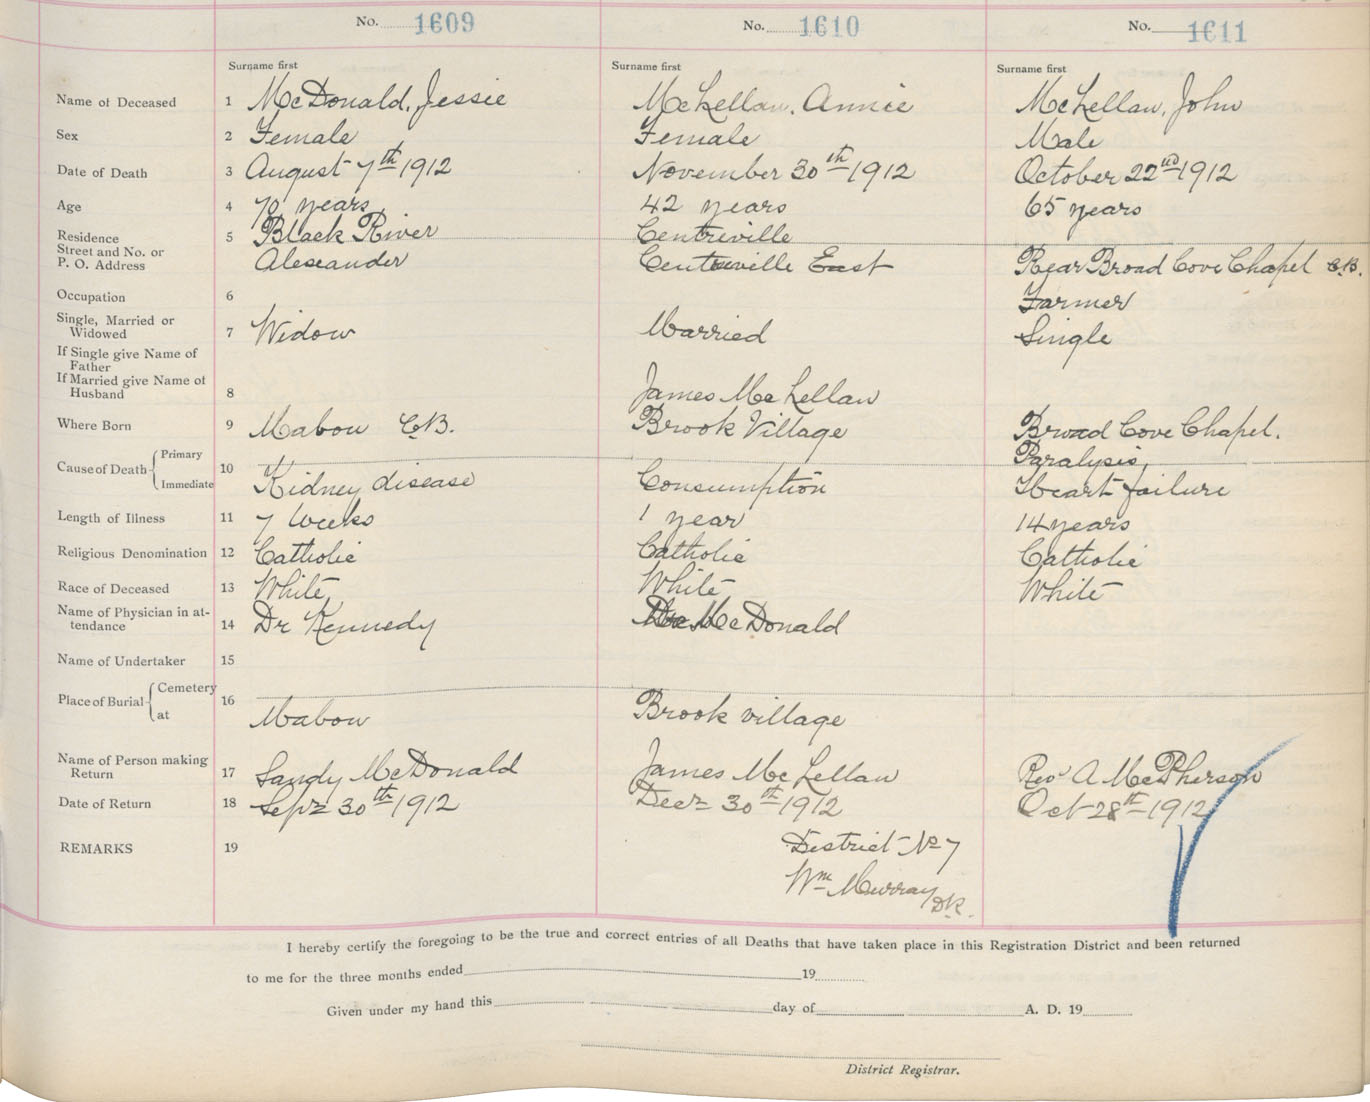 No. 1609 No. 1610 No. 1611
Surname first Surname first Surname first
Name of Deceased 1 McDonald, Jessie McLellan, Annie McLellan, John
Sex 2 Female Female Male
Date of Death 3 August 7th 1912 November 30th 1912 October 22nd 1912
Age 4 70 years 42 years 65 years
Residence 5 Black River Centreville
Street and No. or
P. O. Address Alexander Centreville East Rear Broad Cove Chapel C.B.
Occupation 6 Farmer
Single, Married or
Widowed 7 Widow Married Single
If Single give Name of
Father
If Married give Name of
Husband 8 James McLellan
Where Born 9 Mabou C.B. Brook Village Broad Cove Chapel.
Cause of Death Primary 10 Paralysis,
Immediate Kidney disease Consumption Heart failure
Length of Illness 11 7 Weeks 1 year 14 years
Religious Denomination 12 Catholic Catholic Catholic
Race of Deceased 13 White White White
Name of Physician in at-
tendance 14 Dr Kennedy McDonald
Name of Undertaker 15
Place of Burial Cemetery 16
at Mabou Brook village
Name of Person making
Return 17 Sandy McDonald James McLellan Rev A McPherson
Date of Return 18 Sept 30th 1912 Decr 30th 1912 Oct 28th 1912
REMARKS 19 District No 7
Wm Murray D.R.
I hereby certify the foregoing to be the true and correct entries of all Deaths that have taken place in this Registration District and been returned
to me for the three months ended 19
Given under my hand this day of A. D. 19
District Registrar.